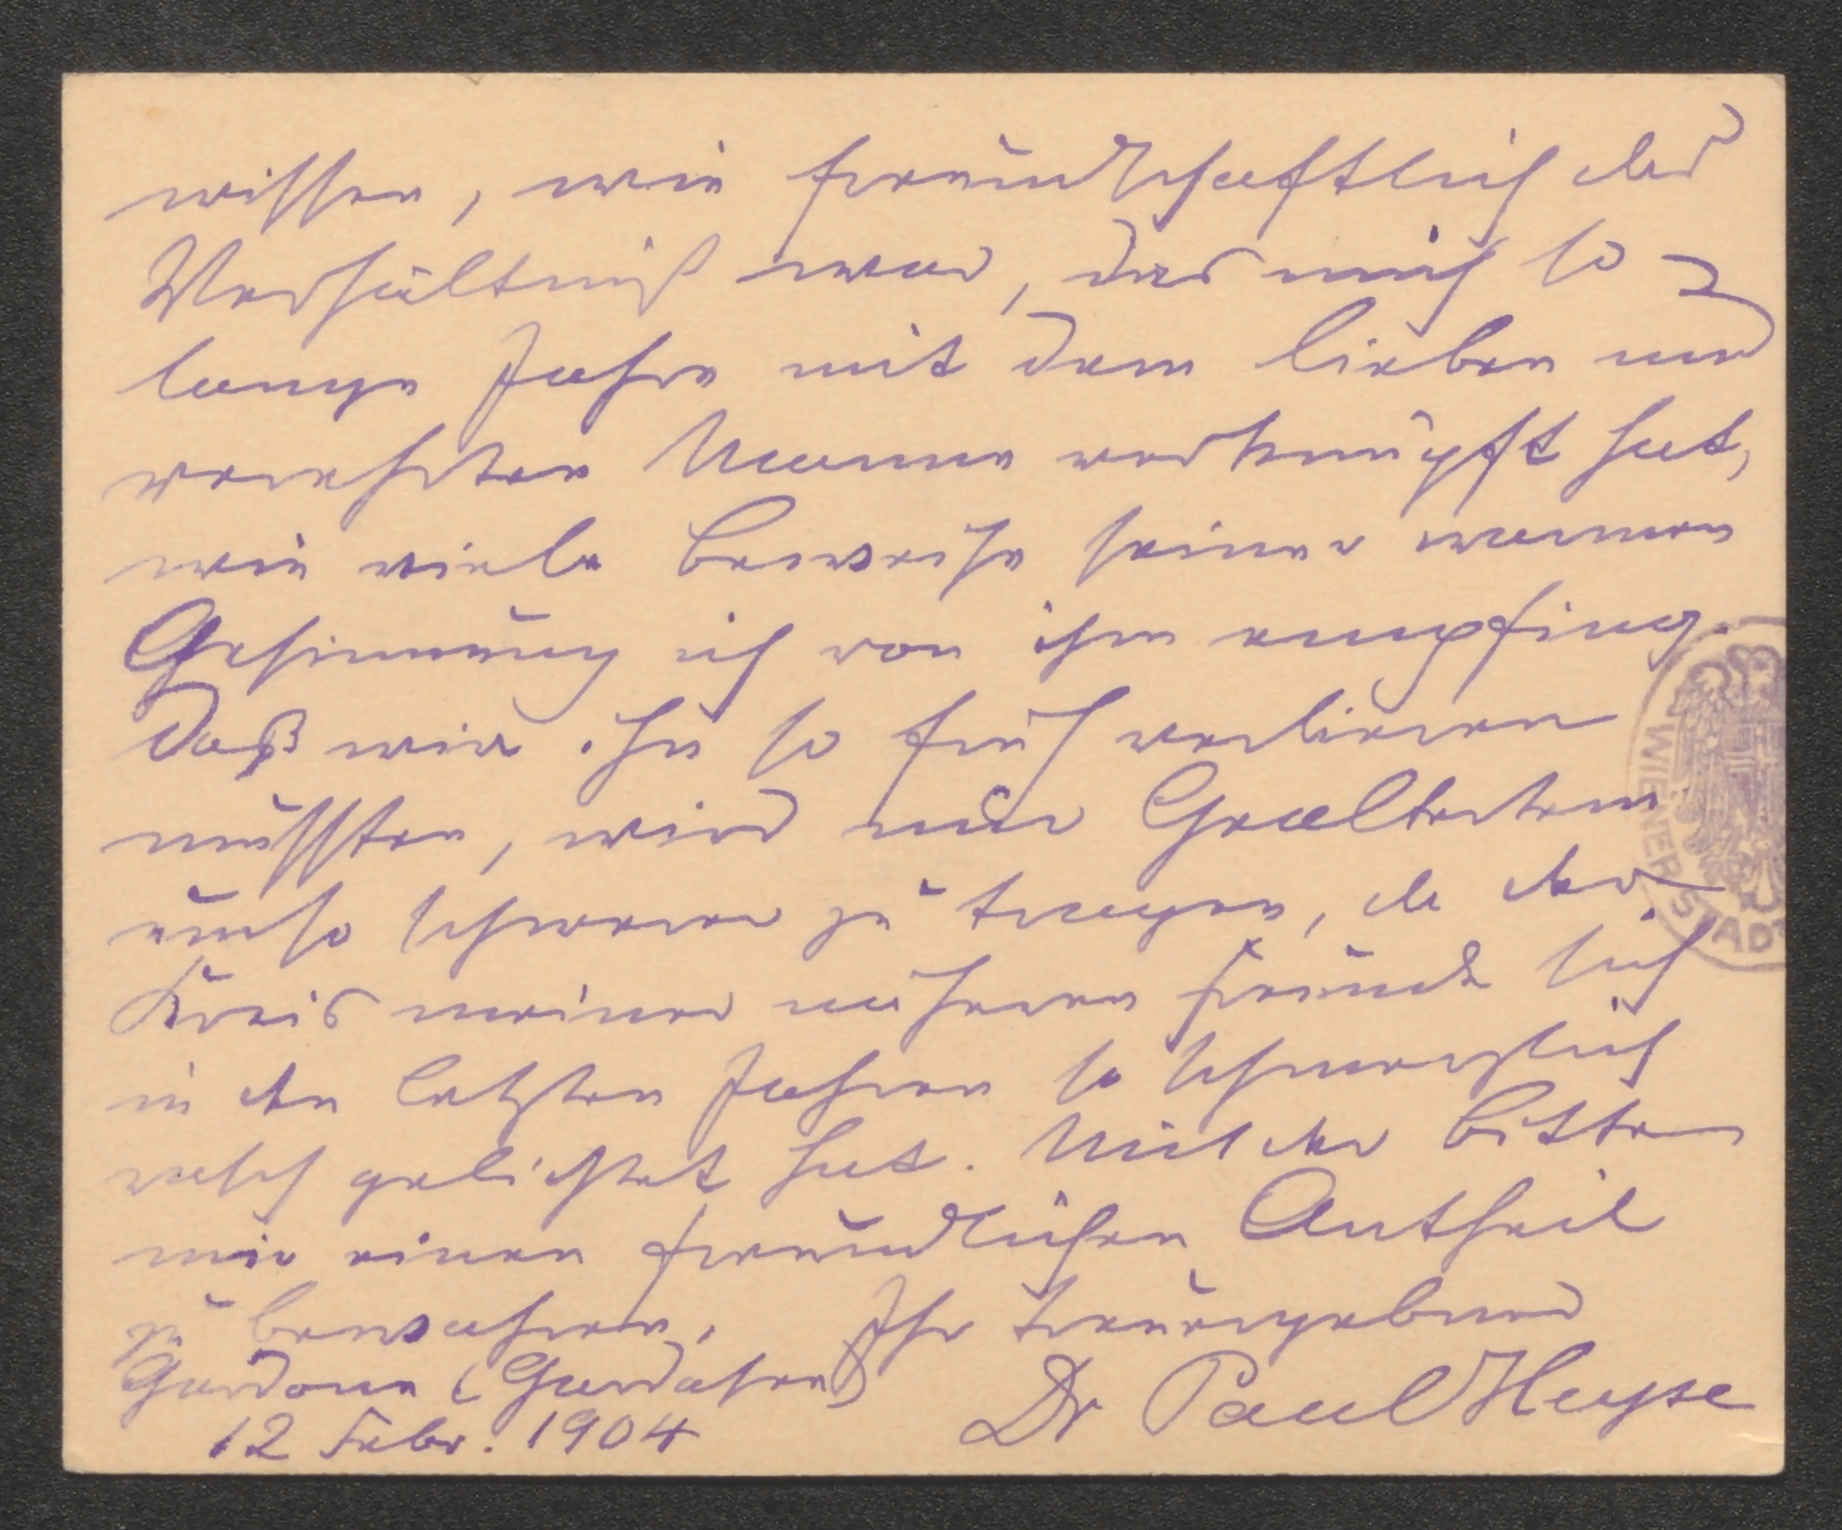 wissen, wie freundschaftlich das
Verhältniß war, das mich so
lange Jahre mit dem lieben und
verehrten Manne verknüpft hat,
wie viele Beweise seiner warmen
Gesinnung ich von ihm empfing.
Daß wir ihn so früh verlieren
mußten, wird mir Gealtertem
umso schwerer zu tragen, da der
Kreis meiner näheren Freunde sich
in den letzten Jahren so schmerzlich
rasch gelichtet hat. Mit der Bitte
mir einen freundlichen Antheil
zu bewahren, Ihr treuergebener
Gardone (Gardasee)
12 Febr. 1904 Dr Paul Heyse
WIENER STADT